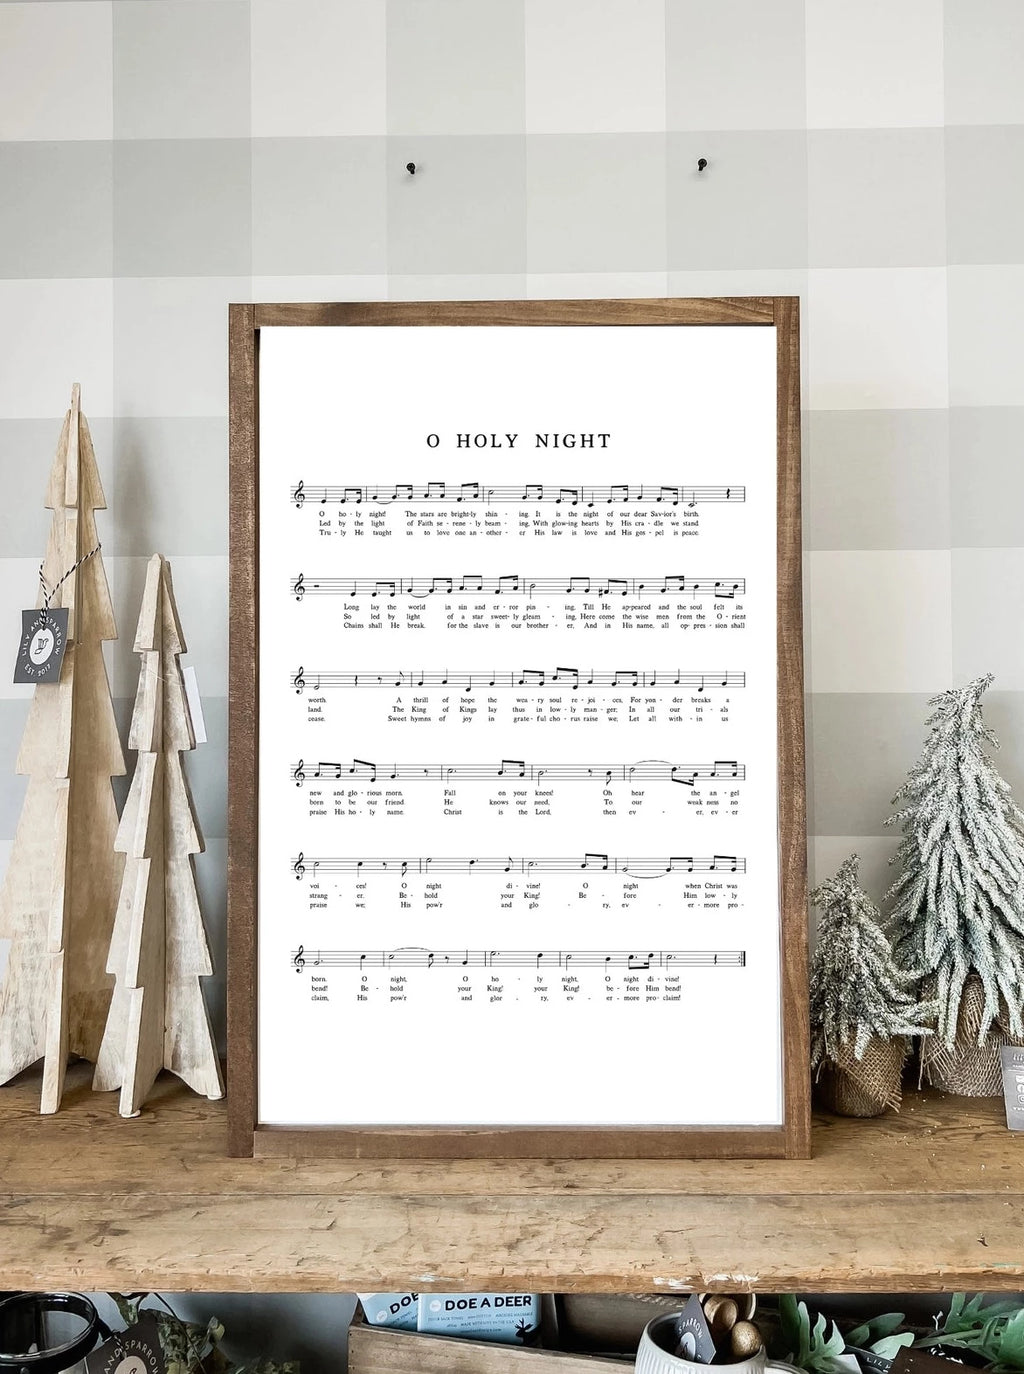 O HOLY NIGHT
O ho - ly night! The stars are bright-ly shin - ing. It is the night of our dear Sav-ior's birth.
Led by the light of Faith se - rene - ly beam - ing, With glow-ing hearts by His cra - dle we stand.
Tru - ly He taught us to love one an - other - er His law is love and His gos - pel is peace.
Long lay the world in sin and er - ror pin - ing, Till He ap-peared and the soul felt its
So led by light of a star sweet - ly gleam - ing, Here come the wise men from the O - rient
Chains shall He break, for the slave is our broth-er - er, And in His name, all op - pres - sion shall
worth A thrill of hope the wea - ry soul re - joi - ces, For yon - der breaks a
land. The King of Kings lay thus in low - ly man - ger; In all our tri - als
cease. Sweet hymns of joy in grate - ful cho - rus raise we; Let all with - in us
new and glo - rious morn. Fall on your knees! Oh hear the an - gel
born to be our friend He knows our need, To our weak ness no
praise His ho - ly name. Christ is the Lord, then ev - er, ev - er
voi - ces! O night di - vine! O night when Christ was
strang - er. Be - hold your King! Be - fore Him low - ly
praise we; His pow'r and glo - ry, ev - er - more pro -
born. O night, O ho - ly night, O night di - vine!
bend! Be - hold your King! your King! be - fore Him bend!
claim, His pow'r and glor - ry, ev - er - more pro - claim!
LILY AND SPARROW
EST. 2017
DOE
DOE A DEER
AND SPARROW
SPARROW
LILY